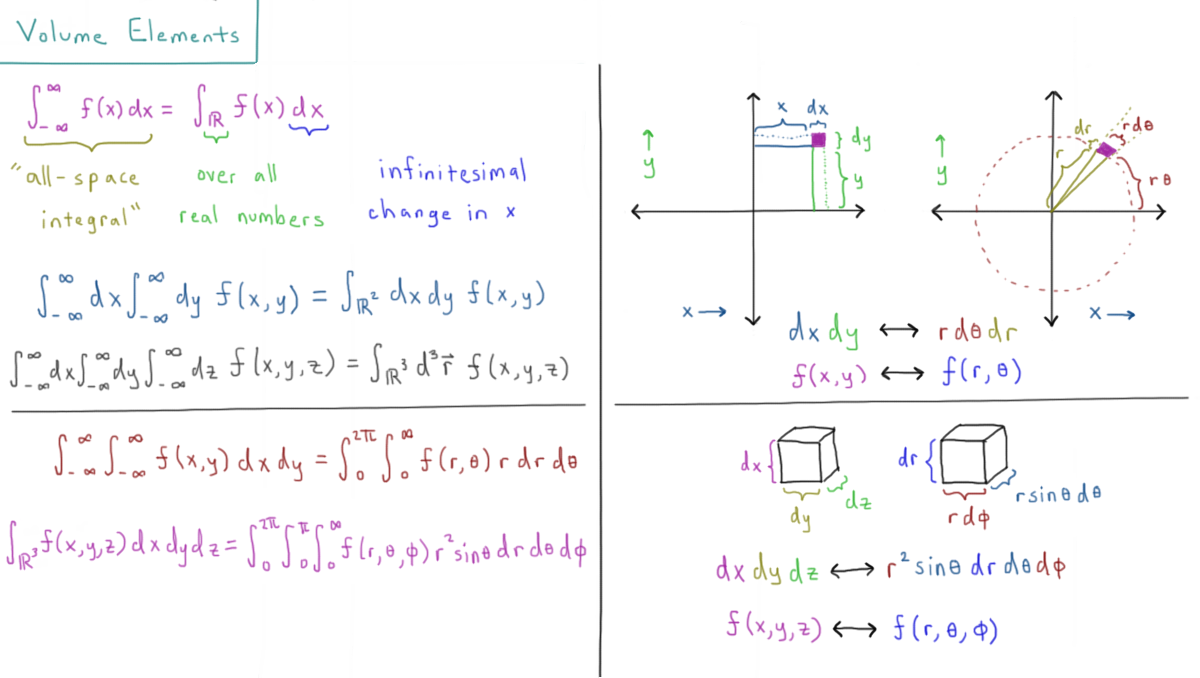 Volume Elements
∫_{-∞}^{∞} f(x) dx = ∫_ℝ f(x) dx
"all-space integral"
over all real numbers
infinitesimal change in x
∫_{-∞}^{∞} dx ∫_{-∞}^{∞} dy f(x,y) = ∫_{ℝ²} dx dy f(x,y)
∫_{-∞}^{∞} dx ∫_{-∞}^{∞} dy ∫_{-∞}^{∞} dz f(x,y,z) = ∫_{ℝ³} d³r⃗ f(x,y,z)
∫_{-∞}^{∞} ∫_{-∞}^{∞} f(x,y) dx dy = ∫_0^{2π} ∫_0^{∞} f(r,θ) r dr dθ
∫_{ℝ³} f(x,y,z) dx dy dz = ∫_0^{2π} ∫_0^{π} ∫_0^{∞} f(r,θ,ϕ) r² sinθ dr dθ dϕ
x dx
dy
y
↑
y
x →
dr r dθ
r
r θ
↑
y
x →
dx dy ↔ r dθ dr
f(x,y) ↔ f(r,θ)
dx
dy
dz
dr
r dϕ
r sinθ dθ
dx dy dz ↔ r² sinθ dr dθ dϕ
f(x,y,z) ↔ f(r,θ,ϕ)